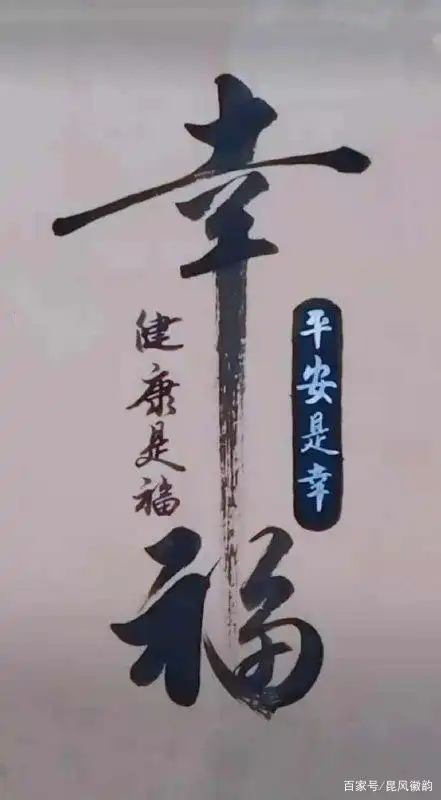 幸福
平安是幸
健康是福
百家号/昆风徽韵